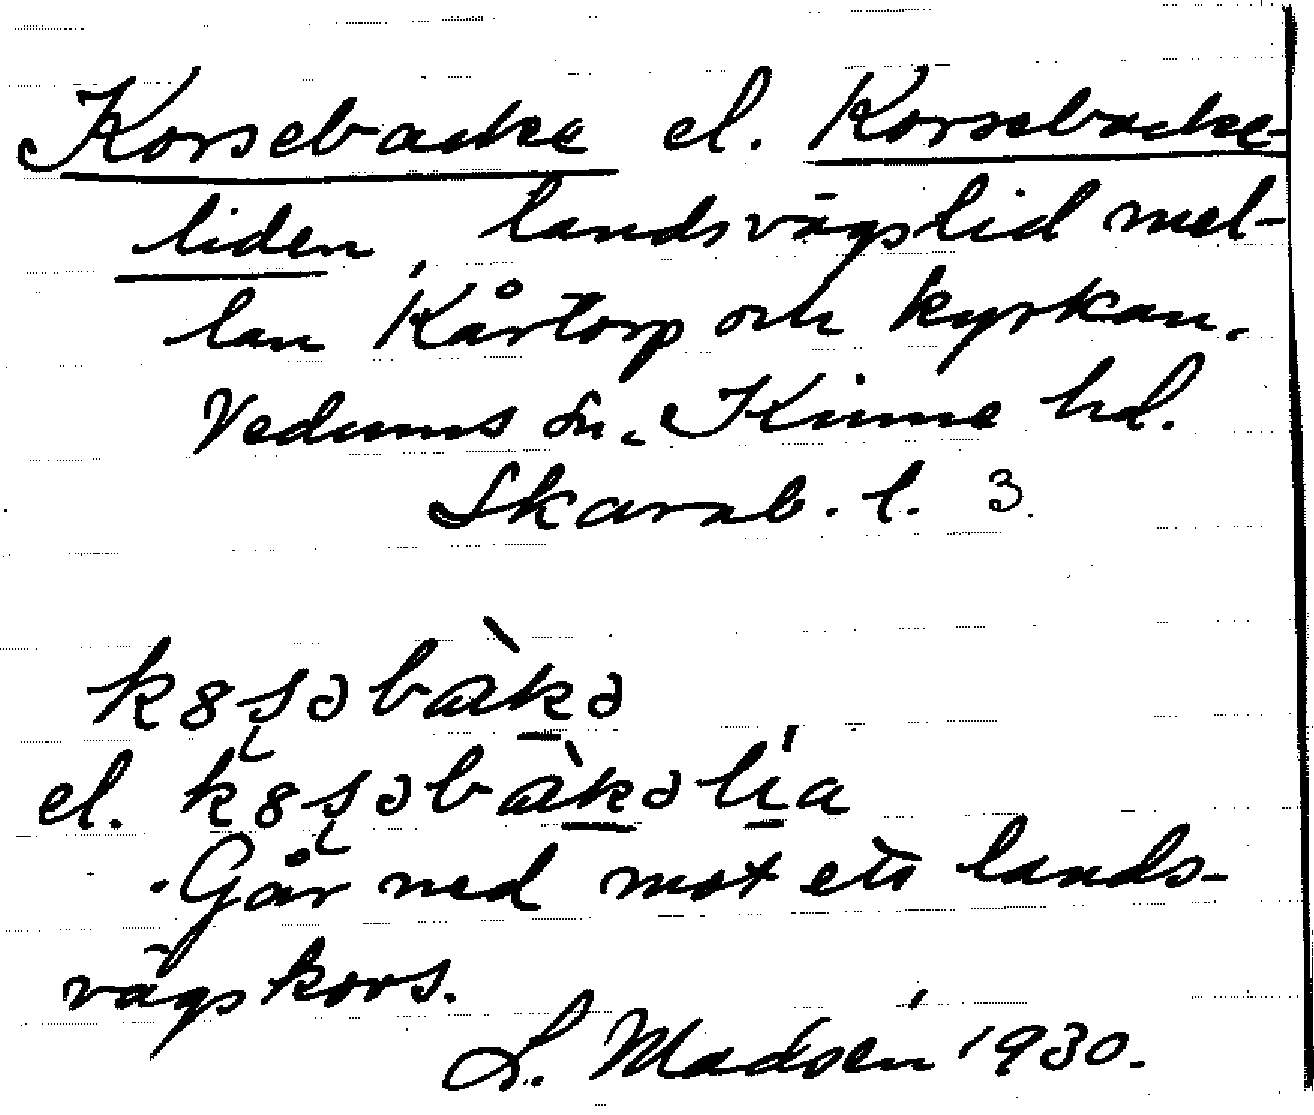 Korsebacke el. Korsebacke-
liden, landsvägslid mel-
lan Kårtorp och kyrkan.
Vedums sn. Kinne hd.
Skarab. l. 3.
k8ʂəbàkə
el. k8ʂəbàkəlía
Går ned mot ett lands-
vägskors.
L. Madsén 1930.